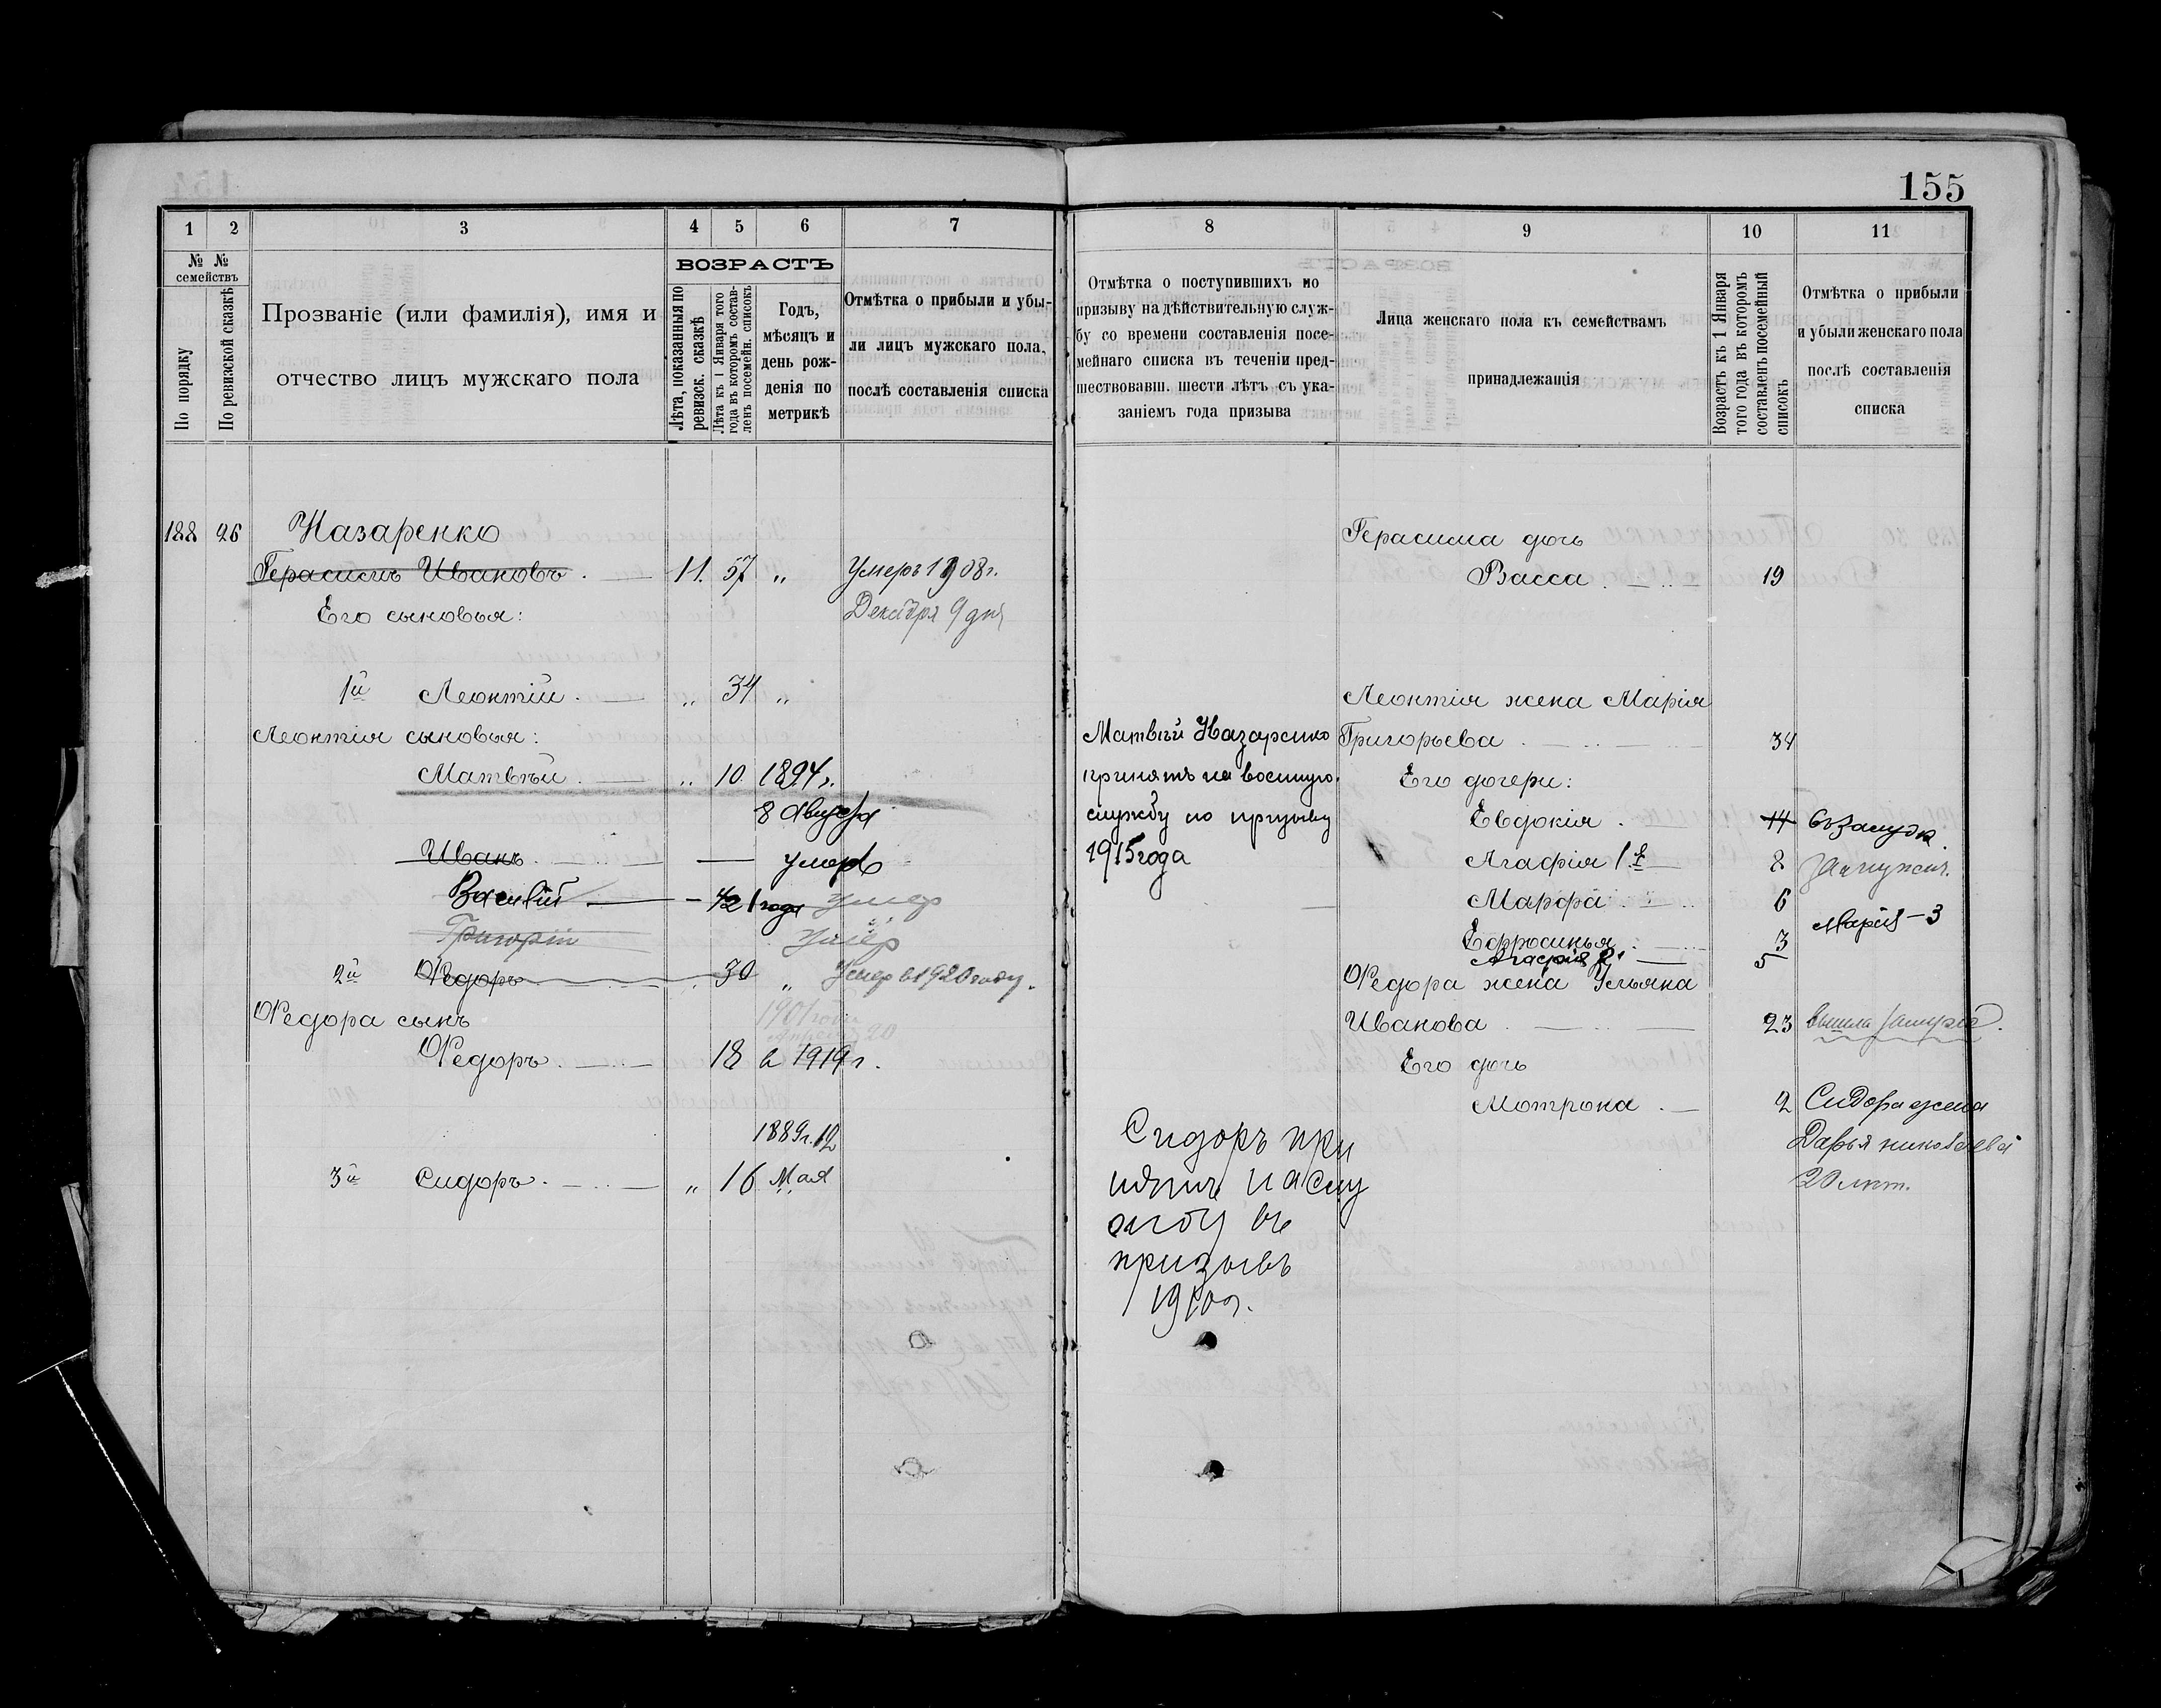 155
1 2 3 4 5 6 7
№ № семействъ
По порядку
По ревизской сказкѣ
Прозваніе (или фамилія), имя и
отчество лицъ мужскаго пола
ВОЗРАСТЪ
Лѣта, показанныя по
ревизск. сказкѣ
Лѣта къ 1 Января того
года въ которомъ состав-
ленъ посемейн. списокъ
Годъ,
мѣсяцъ и
день рож-
денія по
метрикѣ
Отмѣтка о прибыли и убы-
ли лицъ мужскаго пола,
послѣ составленія списка
188 26 Назаренко
Герасимъ Ивановъ 11. 57 „ Умеръ 1908г.
Его сыновья: Декабря 9 дня
1й Леонтій „ 34 „
Леонтія сыновья:
Матвѣй „ 10 1894 г.
8 Августа
Иванъ умеръ
Василій 1 года умер
Григорій умер
2й Федоръ 30 „ Умер в 1920 году.
Федора сынъ 1901 года
Федоръ 18 в 1919 г.
1889г. 12
3й Сидоръ „ 16 Мая
8 9 10 11
Отмѣтка о поступившихъ по
призыву на дѣйствительную служ-
бу со времени составленія посе-
мейнаго списка въ теченіи пред-
шествовавш. шести лѣтъ съ ука-
заніемъ года призыва
Лица женскаго пола къ семействамъ
принадлежащія
Возрастъ къ 1 Января
того года въ которомъ
составленъ посемейный
списокъ
Отмѣтка о прибыли
и убыли женскаго пола
послѣ составленія
списка
Герасима дочь
Васса 19
Леонтія жена Марія
Матвѣй Назаренко Григорьева 34
принятъ на военную Его дочери:
службу по призыву Евдокія 14 въ замуж.
1915 года Агафія 1я 8 замужем.
Марфа 6
Марія - 3
Ефросинья 3
Агафія 2 5
Федора жена Ульяна
Иванова 23 вышла замуж.
Его дочь
Мотрона 2 Сидора жена
Сидоръ при Дарья
нятъ на слу 20 лет.
жбу въ
призывъ
1910 г.